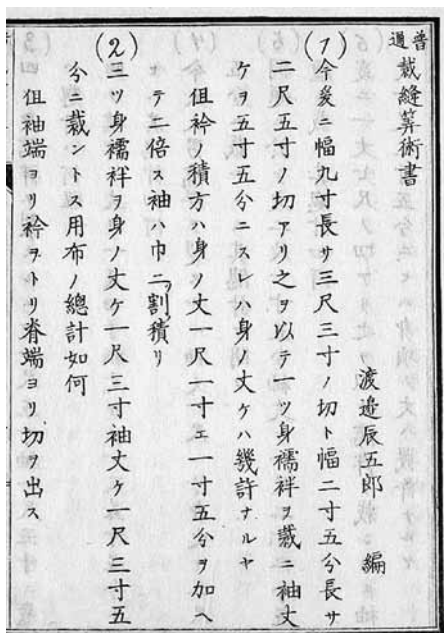 普通 裁縫算術書
渡邉辰五郎 編
(1) 今爰ニ幅九寸長サ三尺三寸ノ切ト幅二寸五分長サ
二尺五寸ノ切アリ之ヲ以テ一ツ身襦袢ヲ裁ニ袖丈
ケヲ五寸五分ニスレハ身ノ丈ケハ幾許ナルヤ
但衿ノ積方ハ身ノ丈一尺一寸エ一寸五分ヲ加ヘ
テ二倍ス袖ハ巾ニ二割積リ
(2) 三ツ身襦袢ヲ身ノ丈ケ一尺三寸袖丈ケ一尺三寸五
分ニ裁ントス用布ノ總計如何
但袖端ヨリ衿ヲトリ脊端ヨリ切ヲ出ス